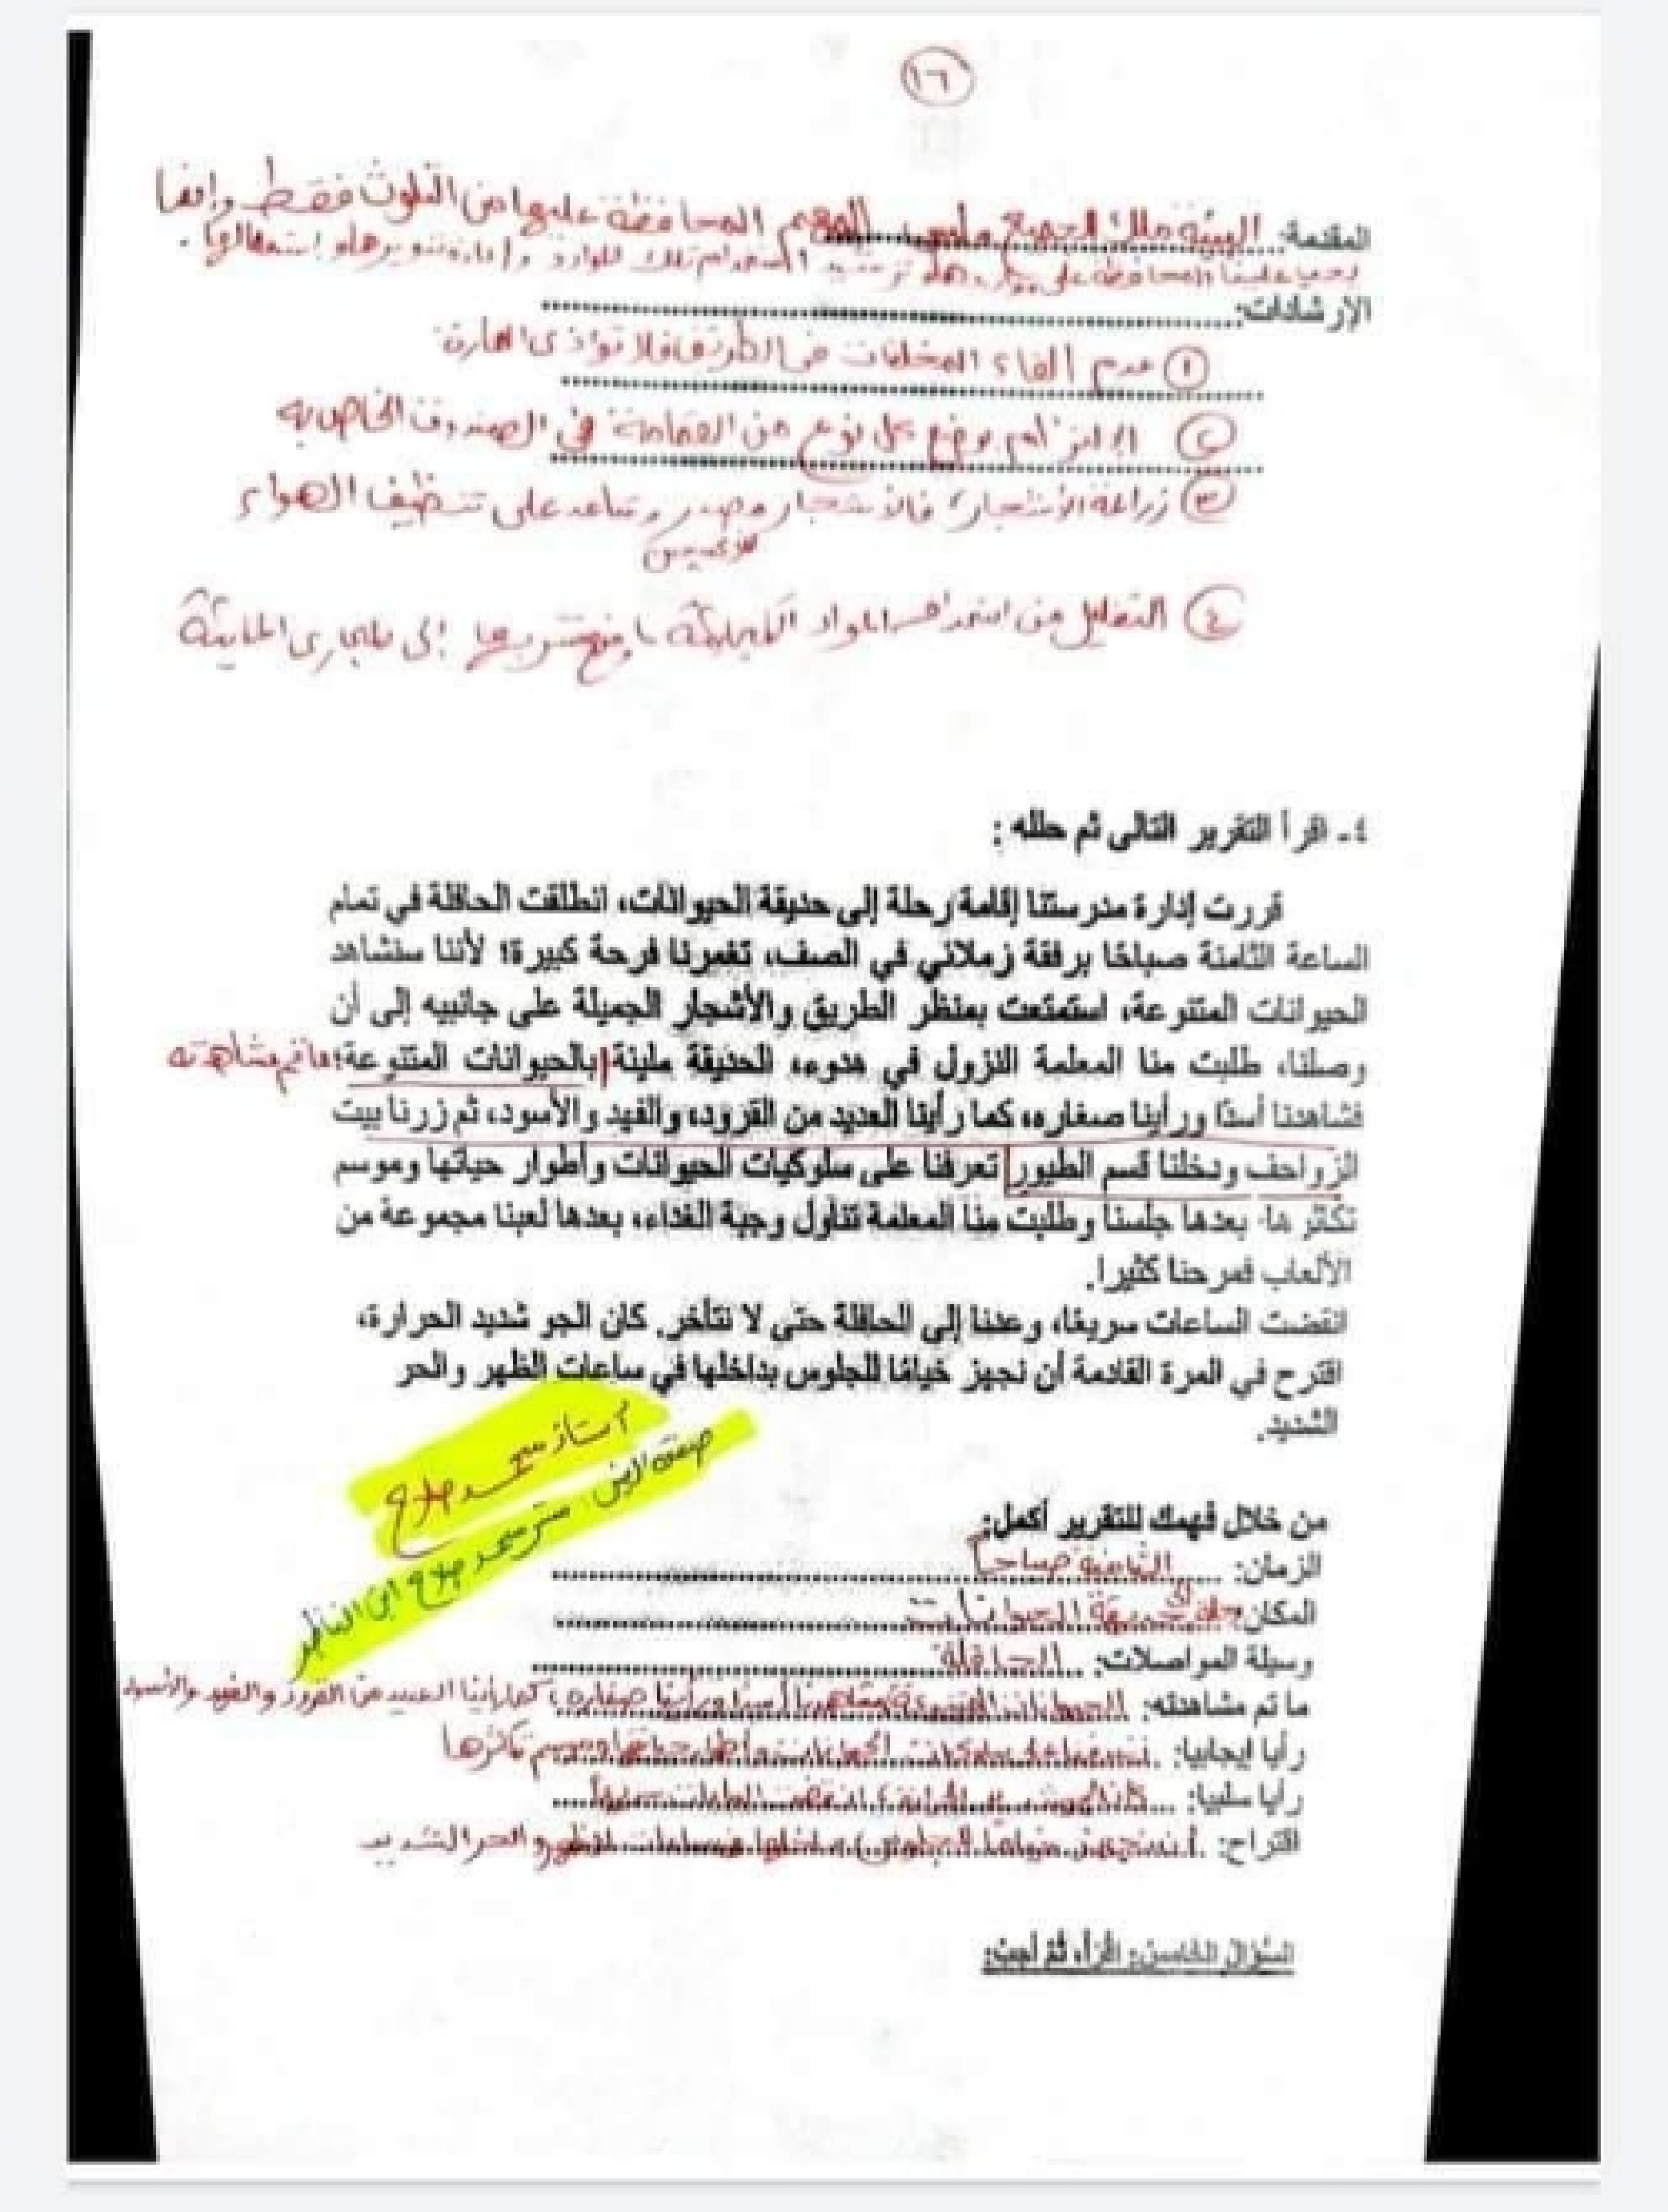 ١٦
المقدمة: البيئة ملك الجميع وليس المهم المحافظة عليها من التلوث فقط وإنما
علينا المحافظة على مواردها ترشيد استخدام تلك الموارد وإعادة تدويرها استعمالها.
الإرشادات:
١ عدم إلقاء المخلفات في الطريق فلا تؤذى المارة
٢ الالتزام بوضع كل نوع من القمامة في الصندوق الخاص به
٣ زراعة الأشجار؛ فالأشجار مصدر وتساعد على تنظيف الهواء
للأكسجين
٤ التقليل من استخدام المواد الكيميائية ومنع تسربها إلى المجارى المائية
٤- اقرأ التقرير التالى ثم حلله :
قررت إدارة مدرستنا إقامة رحلة إلى حديقة الحيوانات، انطلقت الحافلة في تمام
الساعة الثامنة صباحًا برفقة زملائي في الصف، تغمرنا فرحة كبيرة؛ لأننا سنشاهد
الحيوانات المتنوعة، استمتعت بمنظر الطريق والأشجار الجميلة على جانبيه إلى أن
وصلنا، طلبت منا المعلمة النزول في هدوء، الحديقة مليئة بالحيوانات المتنوعة؛ ما تم مشاهدته
فشاهدنا أسدًا ورأينا صغاره، كما رأينا العديد من القرود، والفهد والأسود، ثم زرنا بيت
الزواحف ودخلنا قسم الطيور تعرفنا على سلوكيات الحيوانات وأطوار حياتها وموسم
تكاثرها، بعدها جلسنا وطلبت منا المعلمة تناول وجبة الغداء، بعدها لعبنا مجموعة من
الألعاب فمرحنا كثيرا.
انقضت الساعات سريعًا، وعدنا إلى الحافلة حتى لا نتأخر. كان الجو شديد الحرارة،
اقترح في المرة القادمة أن نجهز خيامًا للجلوس بداخلها في ساعات الظهر والحر
الشديد.
أستاذ محمد صلاح
مستر محمد صلاح ابن الناظر
من خلال فهمك للتقرير أكمل:
الزمان: الثامنة صباحاً
المكان: حديقة الحيوانات
وسيلة المواصلات: الحافلة
ما تم مشاهدته: الحيوانات المتنوعة فشاهدنا أسدا ورأينا صغاره، كما رأينا العديد من القرود والفهد والأسود
رأيا إيجابيا: تعرفنا على سلوكيات الحيوانات وأطوار حياتها وموسم تكاثرها
رأيا سلبيا: كان الجو شديد الحرارة / انقضت الساعات سريعاً
اقتراح: أن نجهز خياماً للجلوس بداخلها في ساعات الظهر والحر الشديد
السؤال الخامس: اقرأ، ثم أجب: